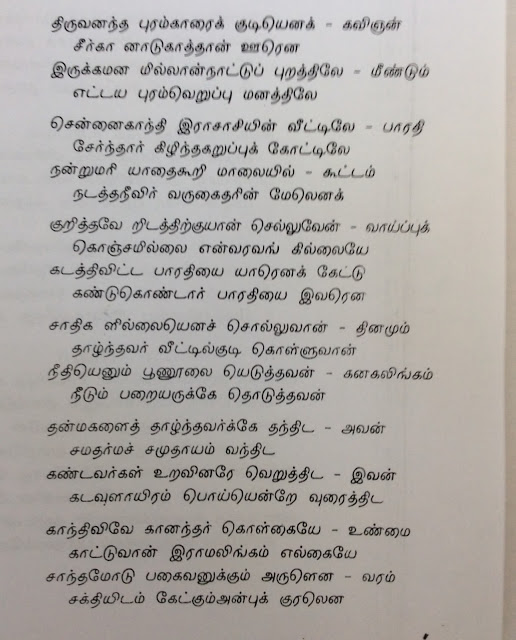 திருவனந்த புரம்காரைக் குடியெனக் – கவிஞன்
சீர்கா னாடுகாத்தான் ஊரென
இருக்கமன மில்லான்நாட்டுப் புறத்திலே – மீண்டும்
எட்டய புரம்வெறுப்பு மனத்திலே
சென்னைகாந்தி இராசாசியின் வீட்டிலே – பாரதி
சேர்ந்தார் கிழிந்தகறுப்புக் கோட்டிலே
நன்றுமரி யாதைகூறி மாலையில் – கூட்டம்
நடத்தநீவிர் வருகைதரின் மேலெனக்
குறித்தவே றிடத்திற்குயான் செல்லுவேன் – வாய்ப்புக்
கொஞ்சமில்லை என்வரவங் கில்லையே
கடத்திவிட்ட பாரதியை யாரெனக் கேட்டு
கண்டுகொண்டார் பாரதியை இவரென
சாதிக ளில்லையெனச் சொல்லுவான் – தினமும்
தாழ்ந்தவர் வீட்டில்குடி கொள்ளுவான்
நீதியெனும் பூணூலை யெடுத்தவன் – கனகலிங்கம்
நீடும் பறையருக்கே தொடுத்தவன்
தன்மகளைத் தாழ்ந்தவர்க்கே தந்திட – அவன்
சமதர்மச் சமுதாயம் வந்திட
கண்டவர்கள் உறவினரே வெறுத்திட – இவன்
கடவுளாயிரம் பொய்யென்றே வுரைத்திட
காந்திவிவே கானந்தர் கொள்கையே – உண்மை
காட்டுவான் இராமலிங்கம் எல்கையே
சாந்தமோடு பகைவனுக்கும் அருளென – வரம்
சக்தியிடம் கேட்கும்அன்புக் குரலென